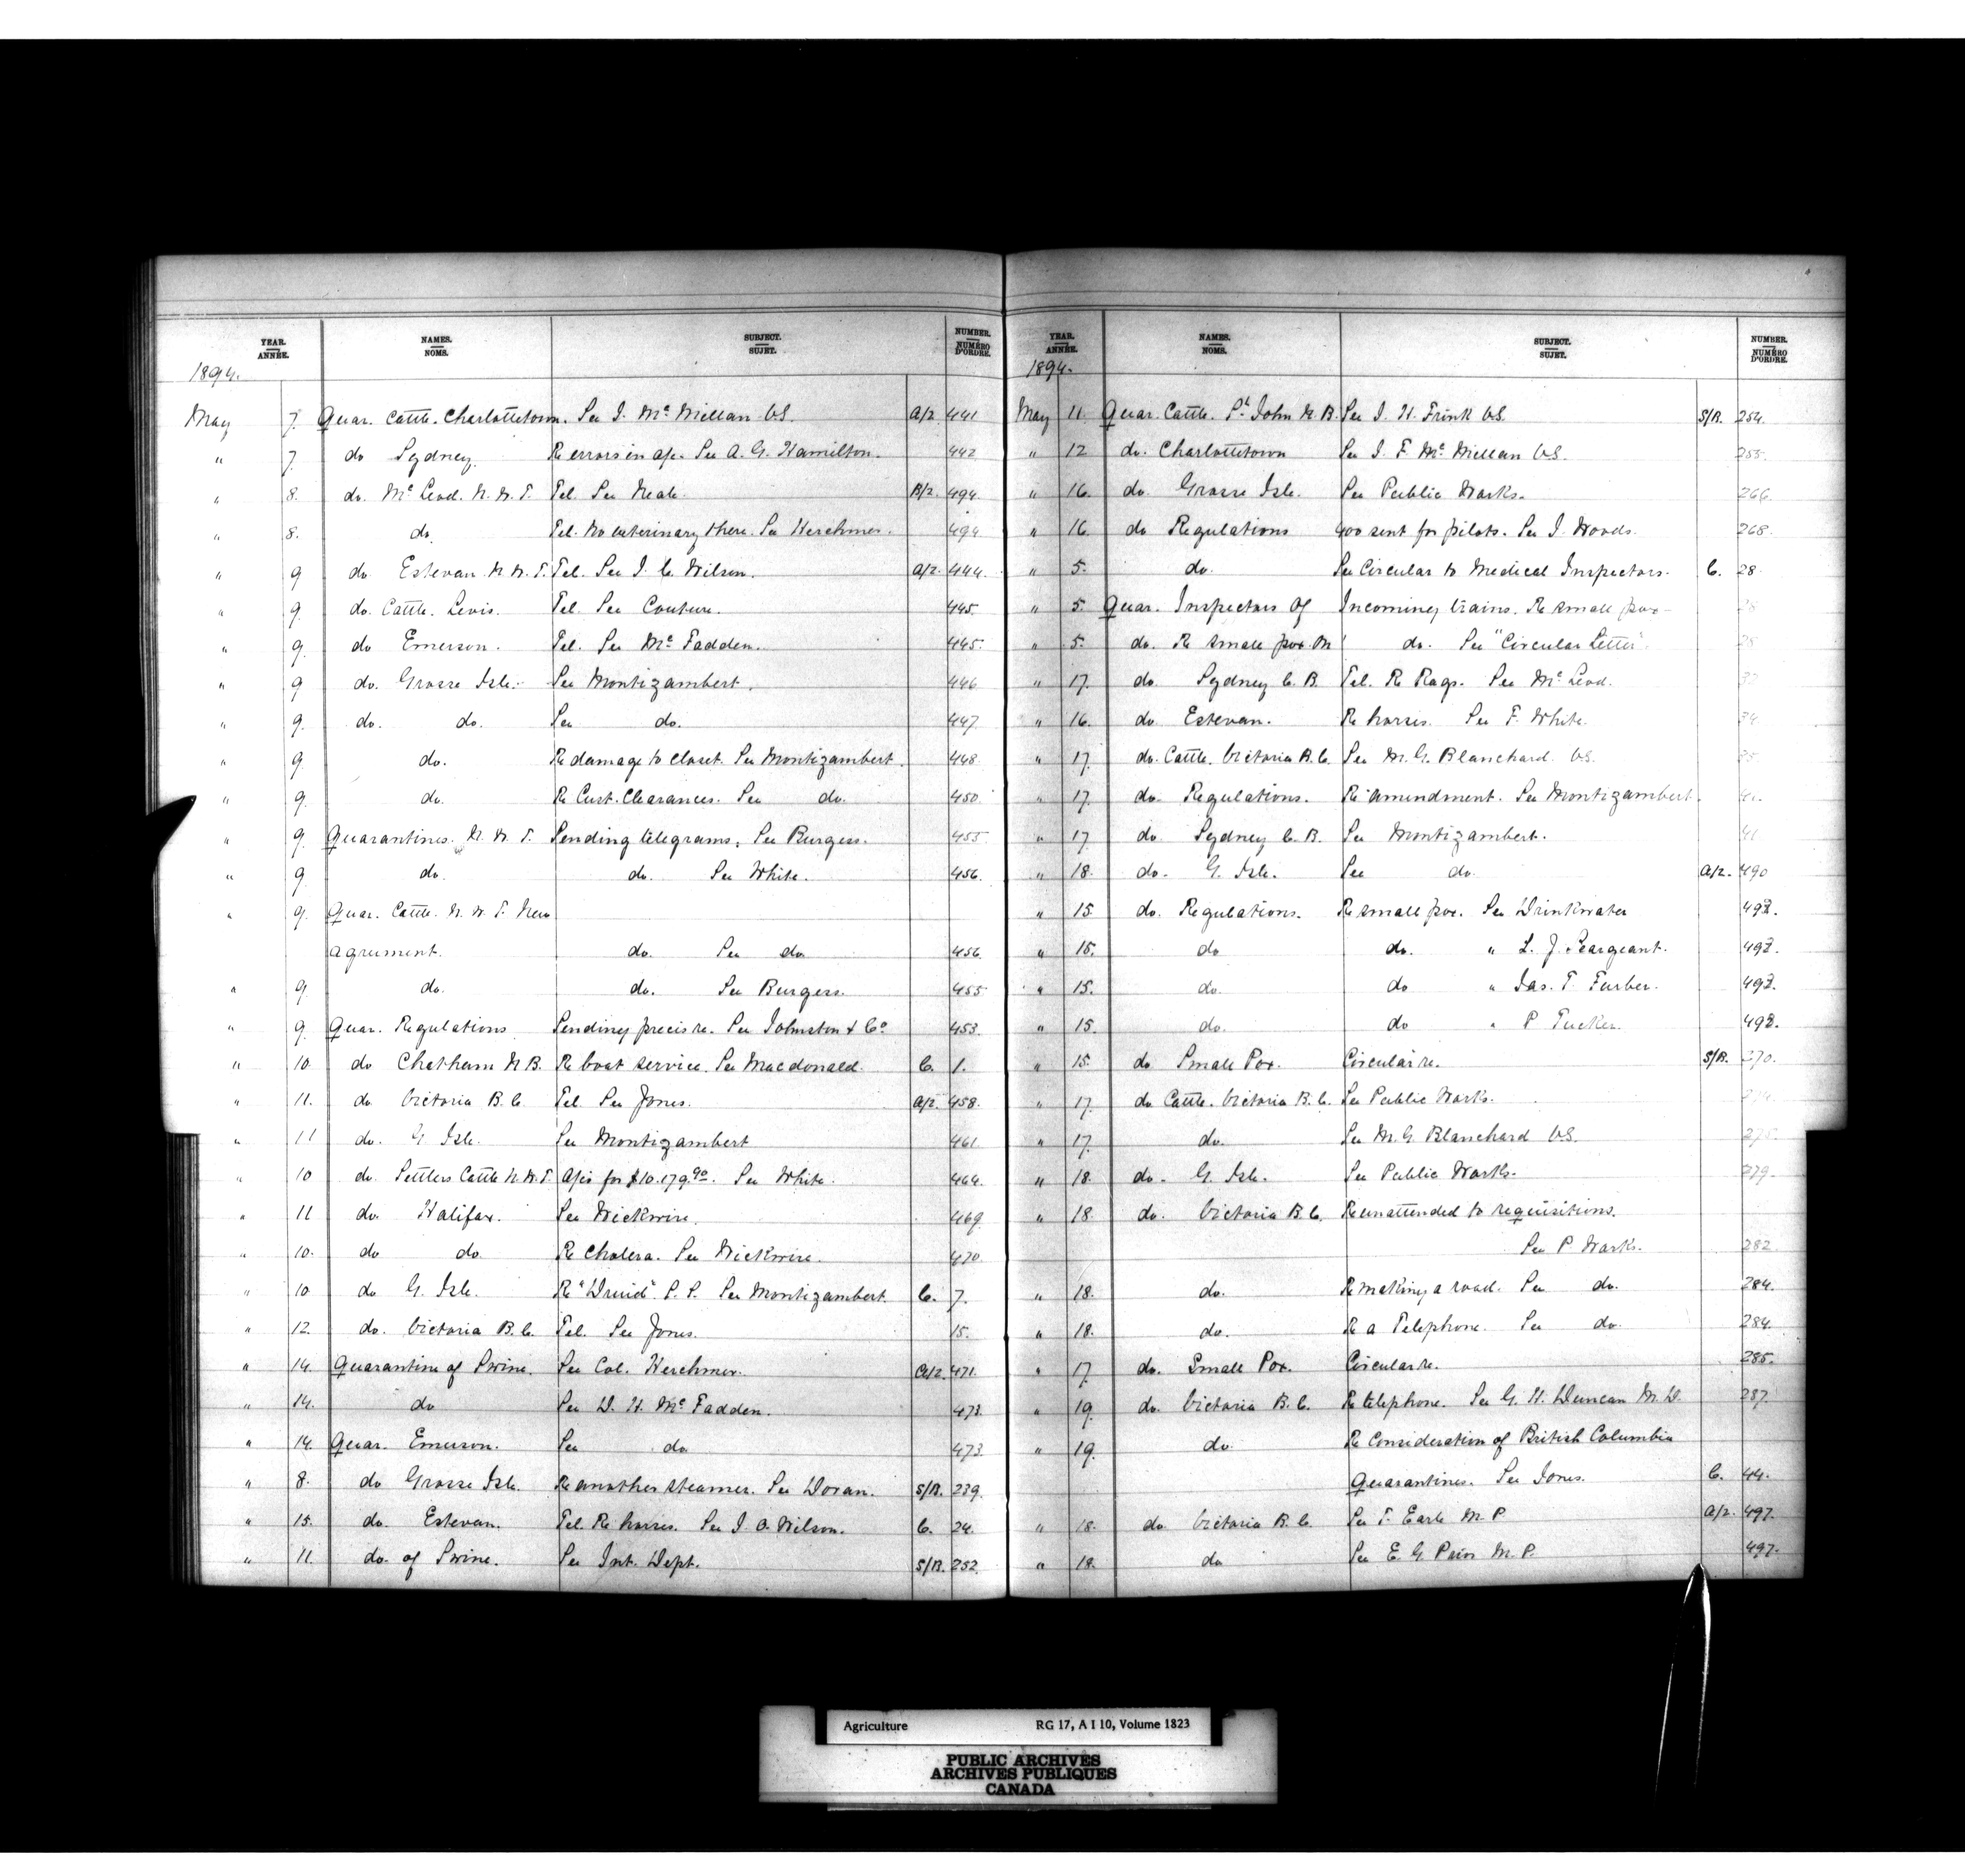 YEAR. ANNÉE. NAMES. NOMS. SUBJECT. SUJET. NUMBER. NUMÉRO D'ORDRE.
1894.
May 7. Quar. Cattle. Charlottetown. See J. Mc Millan V.S. A/2. 441
" 7. do Sydney. Re errors in a/c. See A. G. Hamilton. 442
" 8. do. Mc Leod. N. W. T. Tel. See Neale. B/2. 494.
" 8. do. Tel. No veterinary there. See Herchmer. 494
" 9 do Estevan N. W. T. Tel. See J. C. Wilson. A/2. 444.
" 9. do. Cattle. Levis. Tel. See Couture. 445.
" 9. do Emerson. Tel. See Mc Fadden. 445.
" 9 do. Grosse Isle. See Montizambert. 446
" 9. do. do. See do. 447.
" 9. do. Re damage to closet. See Montizambert. 448
" 9. do. Re Cust. Clearances. See do. 450
" 9. Quarantines. N. W. T. Sending telegrams. See Burgess. 455
" 9 do. do. See White. 456.
" 9. Quar. Cattle. N. W. T. New
agrument. do. See do 456
" 9 do. do. See Burgess. 455
" 9. Quar. Regulations Sending precis re. See Johnston & Co 453.
" 10. do Chatham N B. Re boat service. See Macdonald. C. 1.
" 11. do Victoria B. C Tel. See Jones. A/2. 458.
" 11 do. G Isle. See Montizambert 461
" 10 do. Settlers Cattle N. W. T. A/cs for $10.179.90. See White. 464.
" 11 do. Halifax. See Wickwire. 469
" 10. do do. Re Cholera. See Wickwire. 470
" 10 do G. Isle. Re "Druid" P. P. See Montizambert. C. 7.
" 12. do. Victoria B. C. Tel. See Jones. 15.
" 14. Quarantine of Swine. See Col. Herchmer. A/2. 471.
" 14. do See D. H. Mc Fadden. 473.
" 14. Quar. Emerson. See do 473
" 8. do Grosse Isle. Re another steamer. See Doran. S/B. 239.
" 15. do. Estevan. Tel. Re horses. See J. O. Wilson. C. 24.
" 11. do. of Swine. See Int. Dept. S/B. 252.
YEAR. ANNÉE. NAMES. NOMS. SUBJECT. SUJET. NUMBER. NUMÉRO D'ORDRE.
1894.
May 11. Quar. Cattle. St. John N. B. See J. H. Frink V.S. S/B. 254.
" 12 do. Charlottetown See J. F. Mc Millan V.S. 255.
" 16. do. Grosse Isle. See Public Works. 266.
" 16. do Regulations 400 sent for pilots. See J. Woods. 268.
" 5. do. See Circular to Medical Inspectors. C. 28
" 5. Quar. Inspectors Of Incoming trains. Re small pox 28
" 5. do. Re small pox. On do. See "Circular Letter". 28
" 17. do Sydney C. B. Tel. Re Rags. See Mc Leod. 32
" 16. do Estevan. Re horses. See F. White. 34
" 17. do. Cattle. Victoria B. C. See M. G. Blanchard V.S. 35
" 17. do Regulations. Re amendment. See Montizambert. 41.
" 17 do. Sydney C. B. See Montizambert. 41
" 18. do. G. Isle. See do. A/2. 490
" 15 do. Regulations. Re small pox. See Drinkwater 492.
" 15. do do. " L. J. Seargeant. 492.
" 15. do. do " Jas. T. Furber. 492.
" 15. do. do " P Tucker. 492.
" 15. do Small Pox. Circular re. S/B. 270.
" 17. do Cattle. Victoria B. C. See Public Works. 274.
" 17. do. See M. G. Blanchard V.S. 275.
" 18. do. G. Isle. See Public Works. 279.
" 18. do. Victoria B. C. Re unattended to requisitions.
See P. Works. 282.
" 18. do. Re making a road. See do. 284.
" 18. do. Re a Telephone. See do. 284.
" 17. do. Small Pox. Circular re. 285.
" 19. do. Victoria B. C. Re telephone. See G. H. Duncan M. D. 287.
" 19. do. Re Consideration of British Columbia
Quarantines. See Jones. C. 44.
" 18. do. Victoria B. C. See T. Earle M. P. A/2. 497.
" 18. do See E. G. Prior M. P. 497.
Agriculture RG 17, A I 10, Volume 1823
PUBLIC ARCHIVES
ARCHIVES PUBLIQUES
CANADA